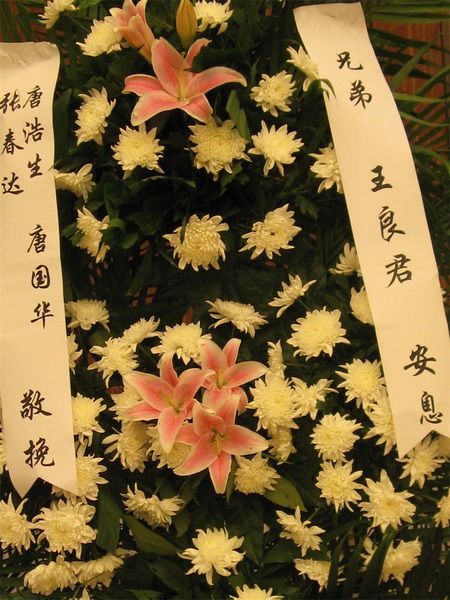 兄弟 王良君 安息
唐浩生
张春达
唐国华
敬挽